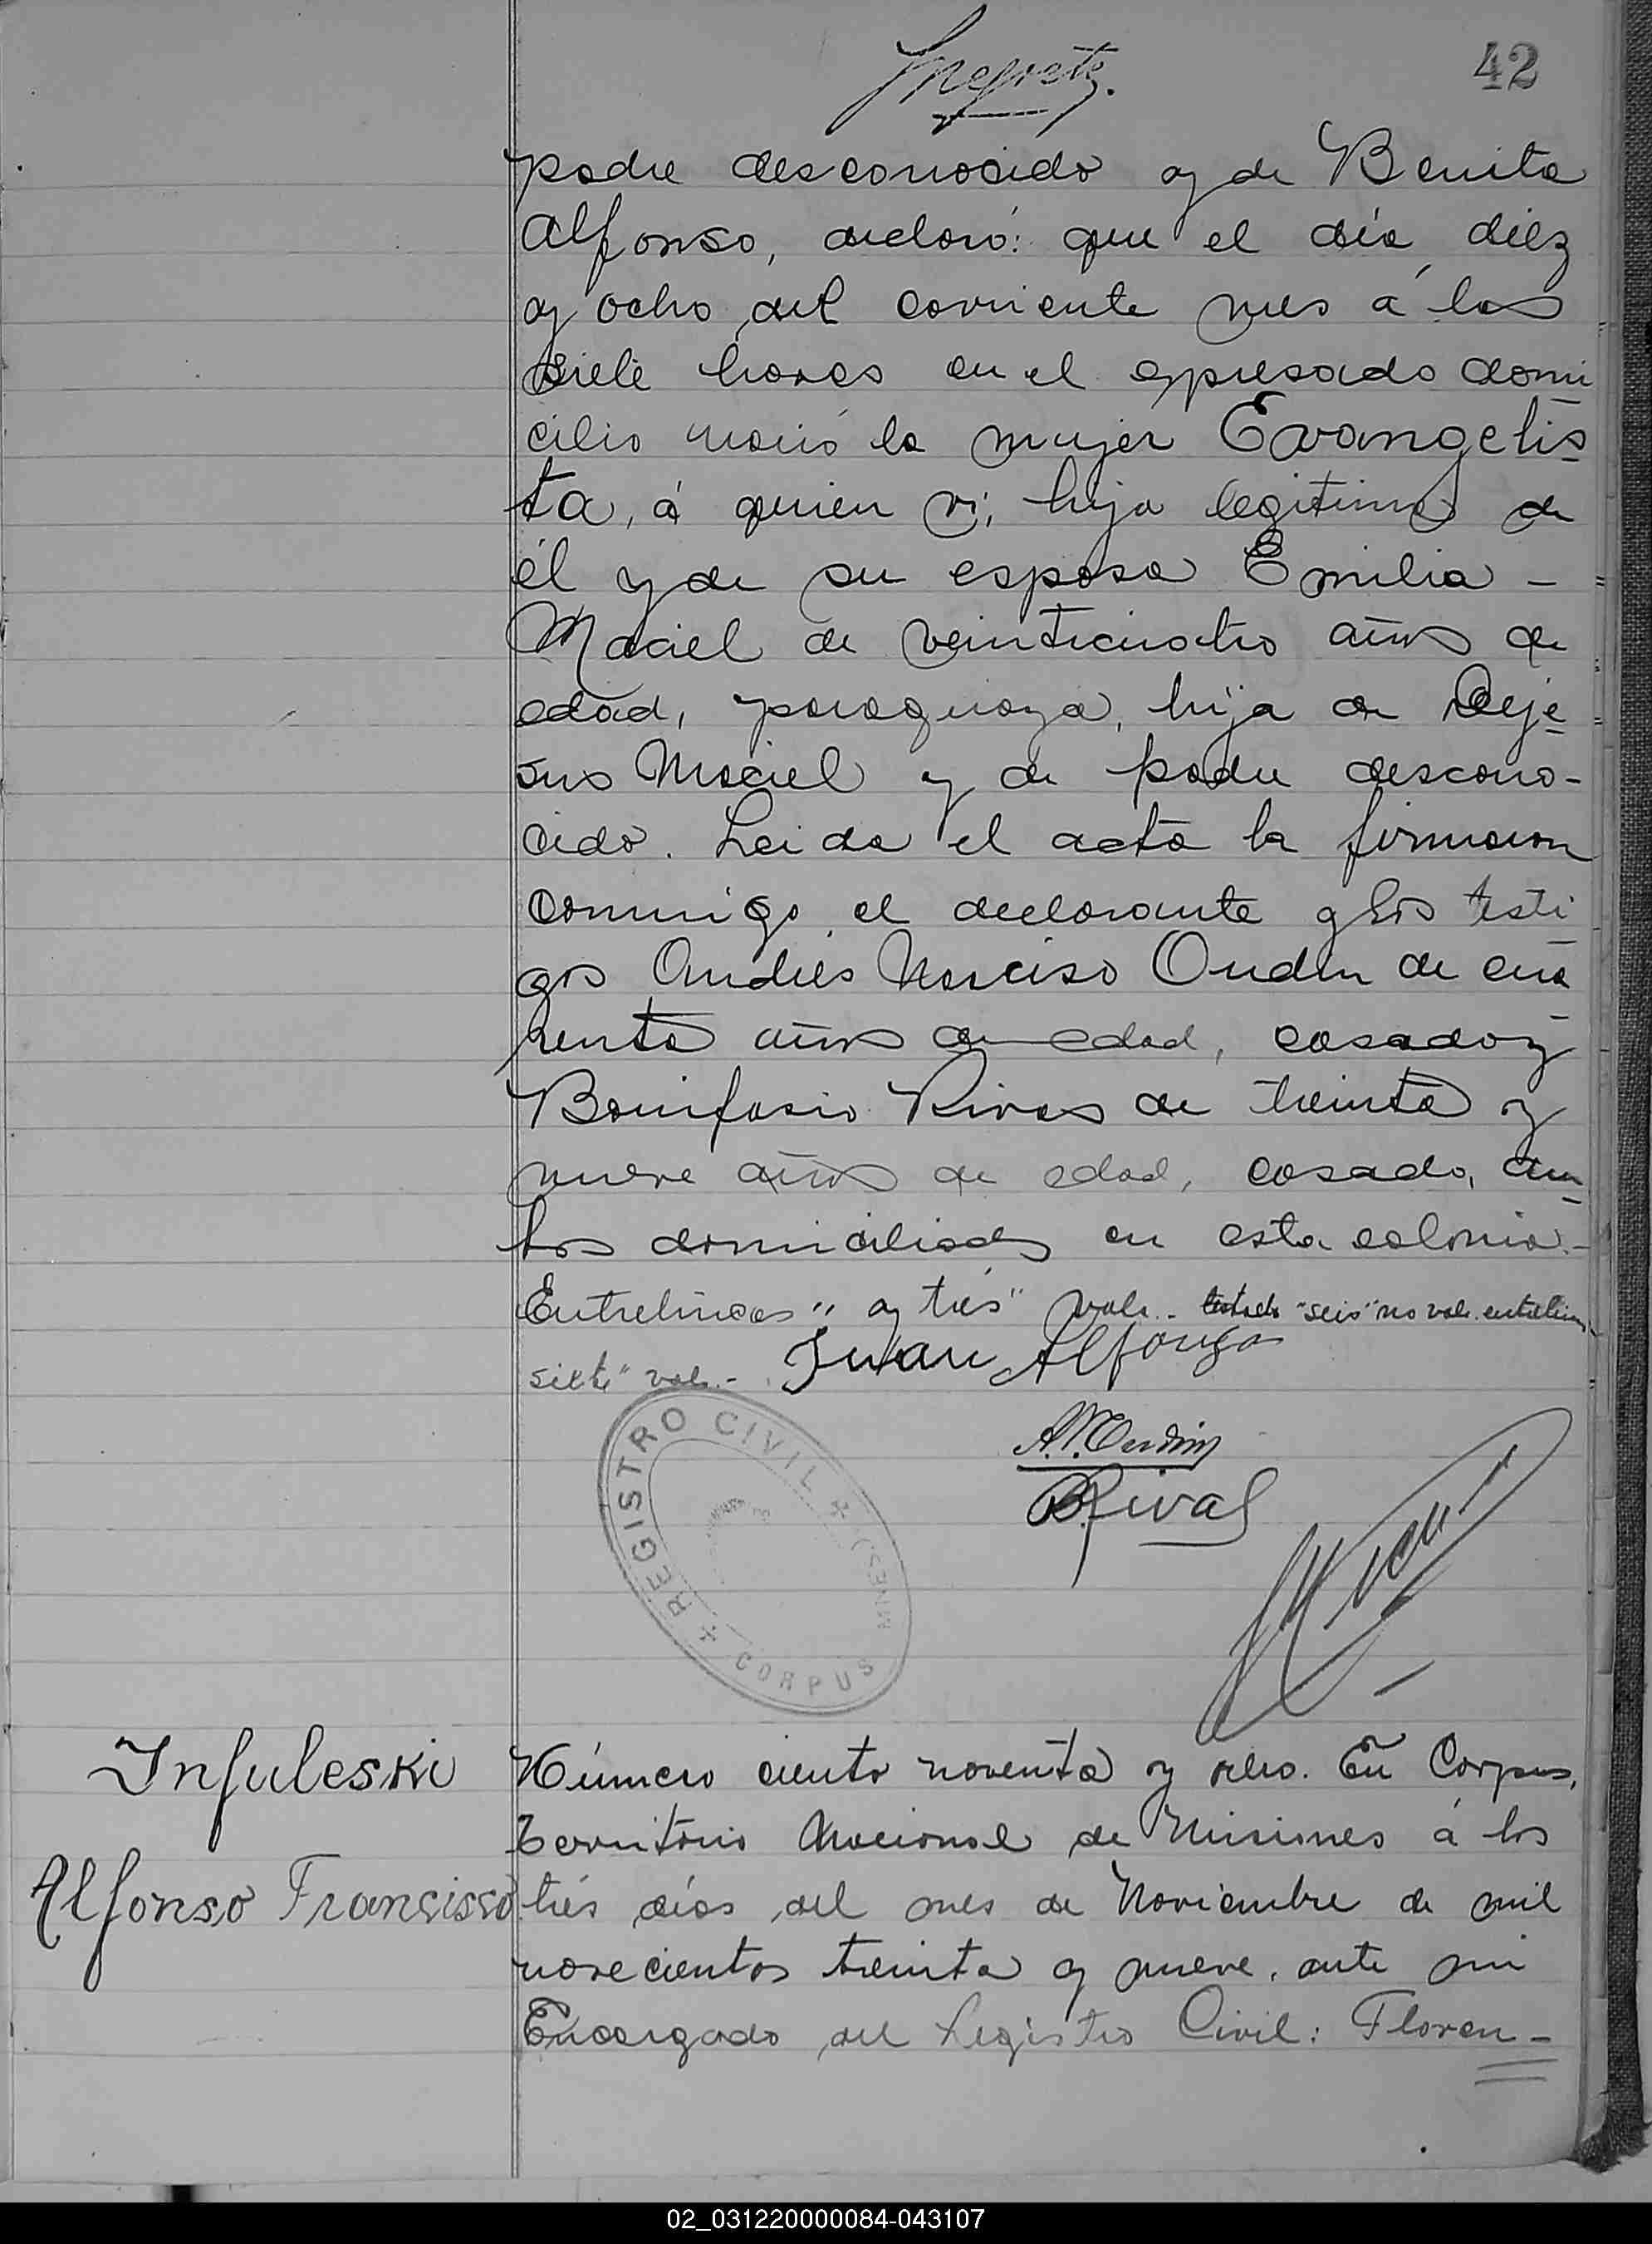 42
padre desconocido y de Benita
Alfonso, declaró: que el día diez
y ocho del corriente mes á las
siete horas en el expresado domi
cilio nació la mujer Evangelis
ta, á quien vi, hija legitima de
él y de su esposa Emilia -
Maciel de veinticuatro años de
edad, paraguaya, hija de Deje
sus Maciel y de padre descono-
cido. Leida el acta la firmaron
conmigo el declarante y los testi
gos Andrés Narciso Ondin de cua
renta años de edad, casado y
Bonifasio Rivas de treinta y
nueve años de edad, casado, am
bos domiciliados en esta colonia.-
Entrelineas "y trés" vale.- testado "seis" no vale. entrelineas
siete" vale.- Juan Alfonso
A. N. Ondin
B. Rivas
REGISTRO CIVIL
CORPUS
Infuleski
Alfonso Francisco
Número ciento noventa y ocho. En Corpus,
Territorio Nacional de Misiones á los
trés días del mes de Noviembre de mil
novecientos treinta y nueve, ante mi
Encargado del Registro Civil: Floren-
02_031220000084-043107